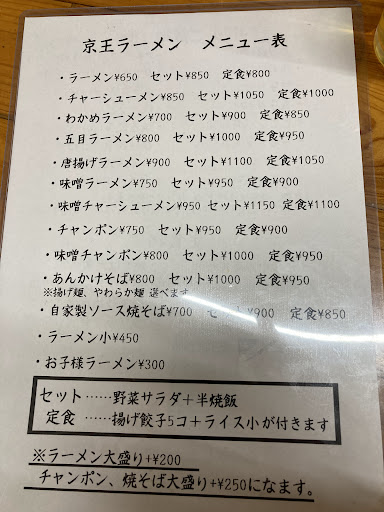 京王ラーメン　メニュー表
・ラーメン¥650　セット¥850　定食¥800
・チャーシューメン¥850　セット¥1050　定食¥1000
・わかめラーメン¥700　セット¥900　定食¥850
・五目ラーメン¥800　セット¥1000　定食¥950
・唐揚げラーメン¥900　セット¥1100　定食¥1050
・味噌ラーメン¥750　セット¥950　定食¥900
・味噌チャーシューメン¥950　セット¥1150　定食¥1100
・チャンポン¥750　セット¥950　定食¥900
・味噌チャンポン¥800　セット¥1000　定食¥950
・あんかけそば¥800　セット¥1000　定食¥950
※揚げ麺、やわらか麺 選べます
・自家製ソース焼そば¥700　セット¥900　定食¥850
・ラーメン小¥450
・お子様ラーメン¥300
セット……野菜サラダ＋半焼飯
定食　……揚げ餃子5コ＋ライス小が付きます
※ラーメン大盛り+¥200
チャンポン、焼そば大盛り+¥250になます。